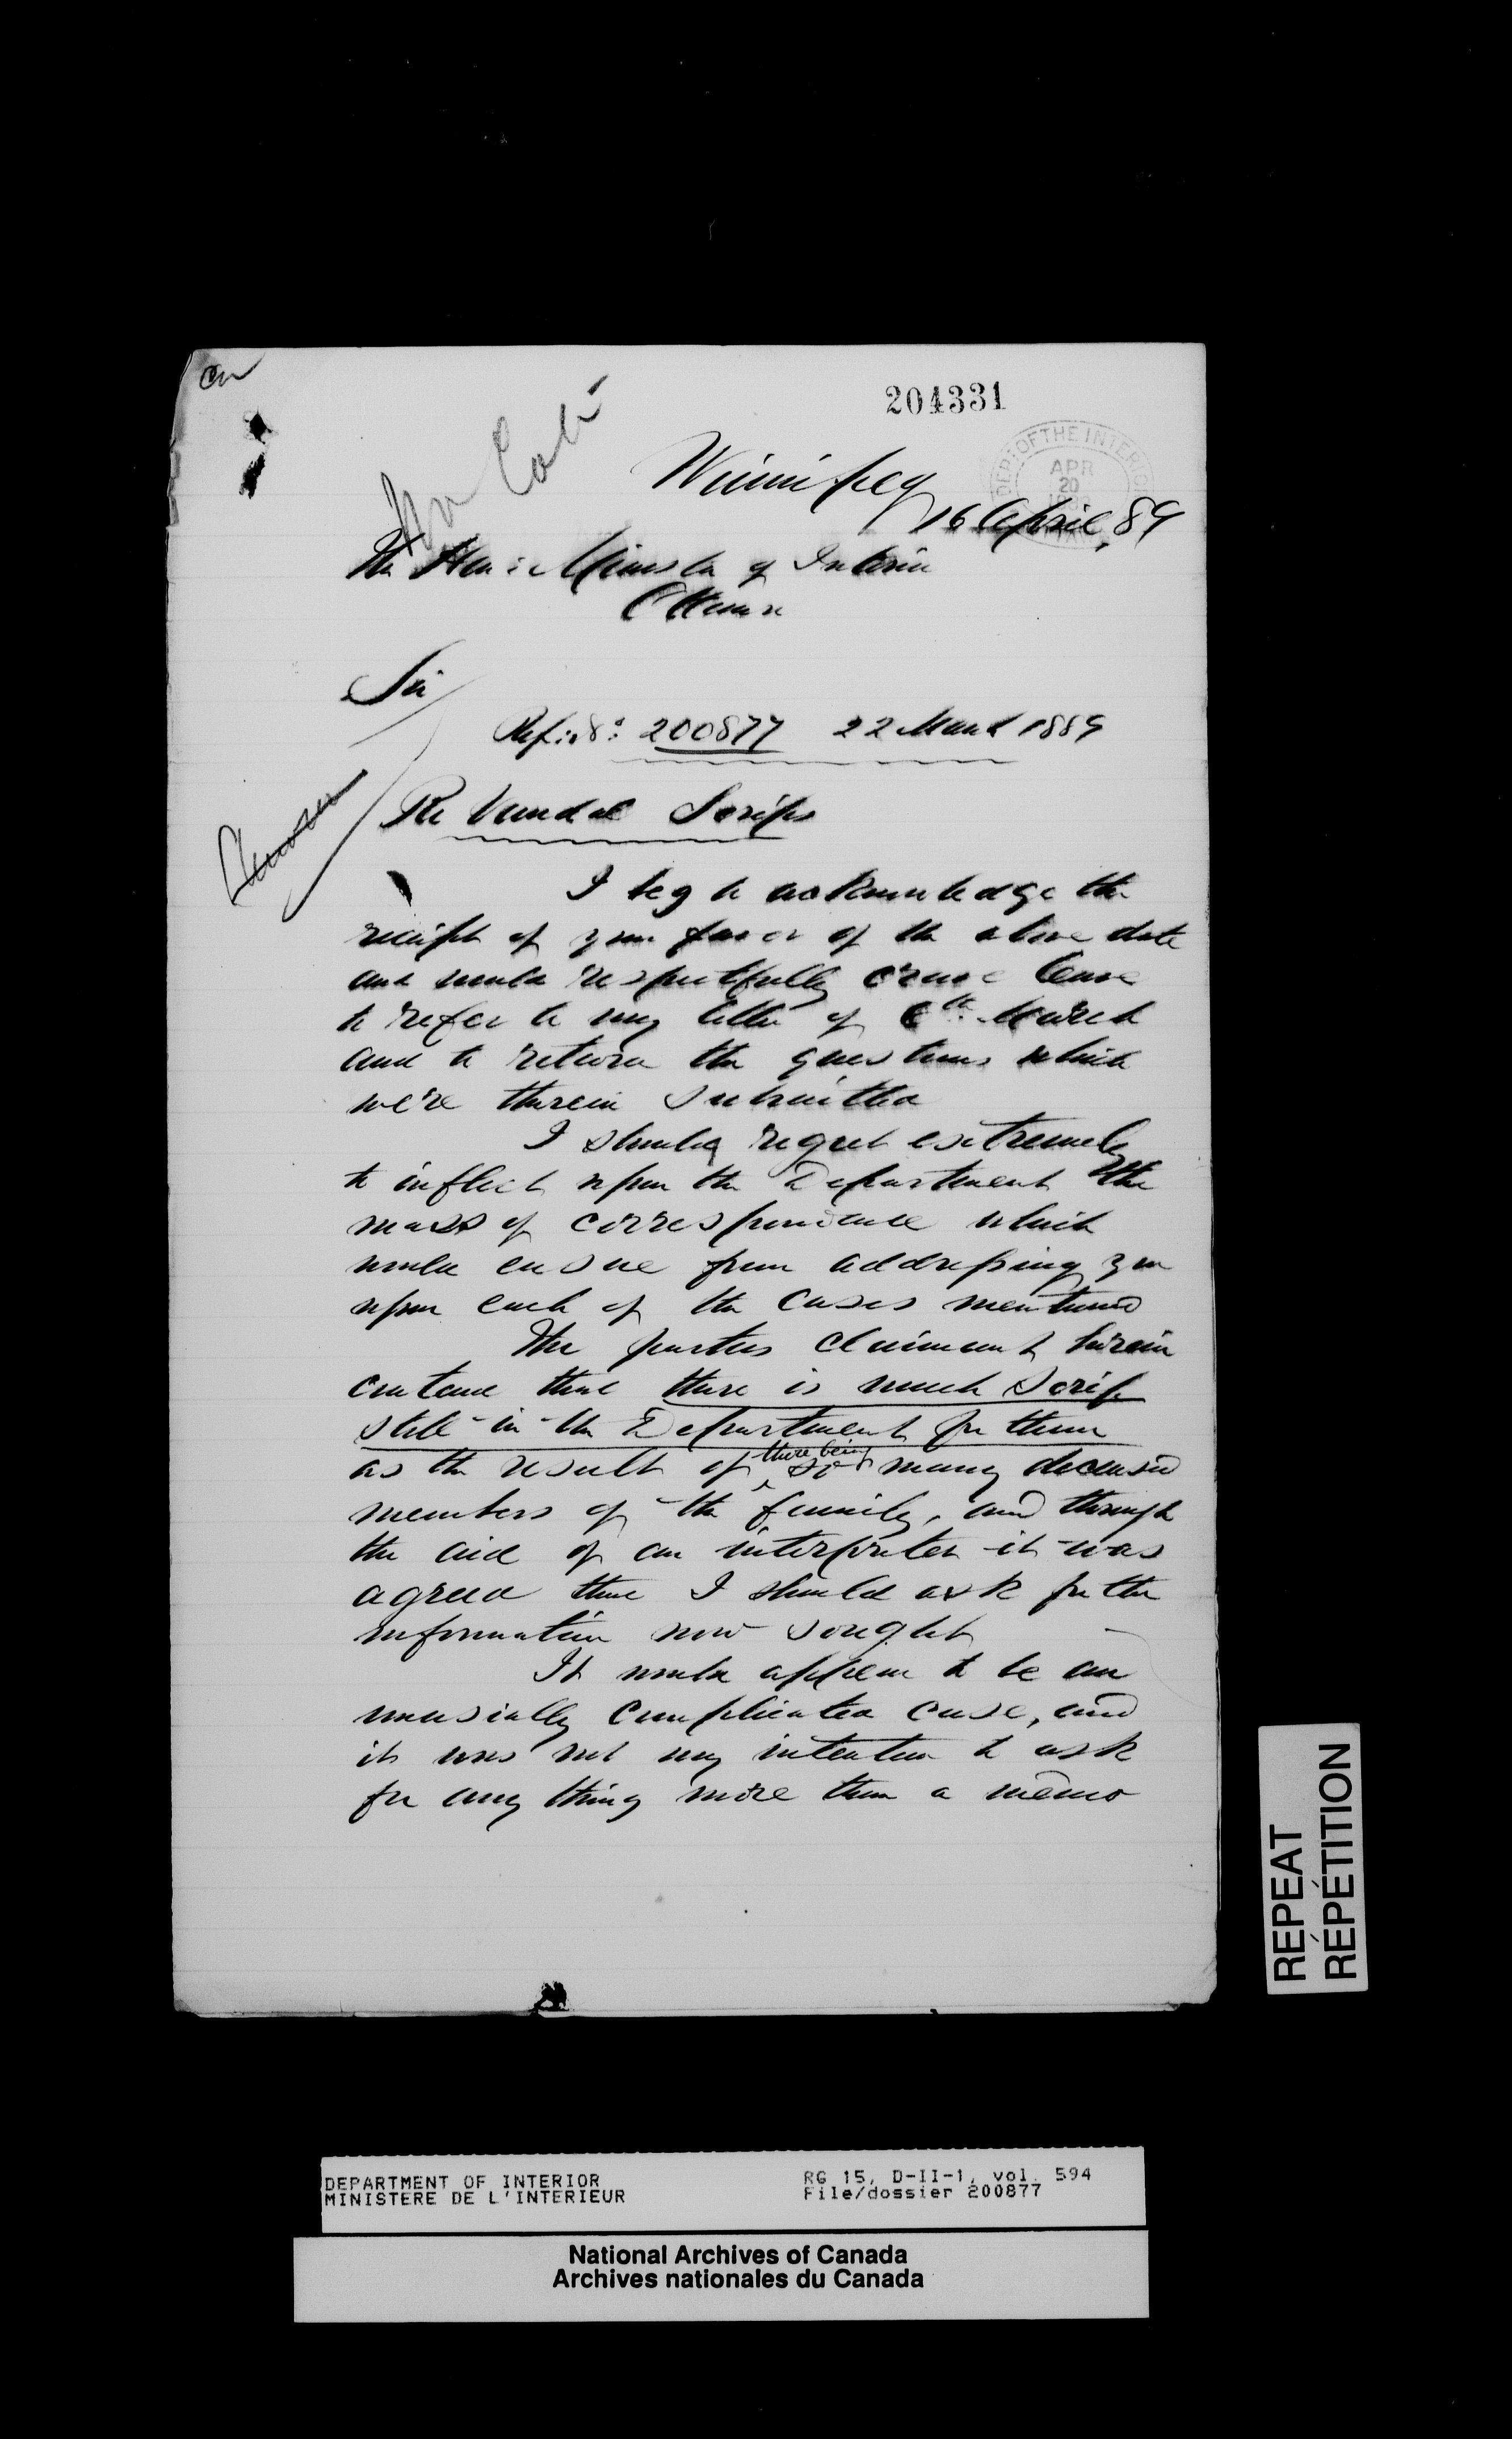 204331
DEPT OF THE INTERIOR
APR
20
Winnipeg
16 April, 89
The Hon: Minister of Interior
Ottawa
Sir
Ref: No: 200877 22 March 1889
Re Vandal Scrips
I beg to acknowledge the
receipt of your favor of the above date
and would respectfully crave leave
to refer to my letter of 6th. March
and to return the questions which
were therein submitted
I should regret extremely
to inflict upon the Department the
mass of correspondence which
would ensue from addressing you
upon each of the cases mentioned
The parties claimant herein
contend that there is much Scrip
still in the Department for them
as the result of there being so many deceased
members of the family, and through
the aid of an interpreter it was
agreed that I should ask for the
information now sought
It would appear to be an
unusially complicated case, and
it was not my intention to ask
for any thing more than a memo
REPEAT
RÉPÉTITION
DEPARTMENT OF INTERIOR
MINISTERE DE L'INTERIEUR
RG 15, D-II-1, vol. 594
File/dossier 200877
National Archives of Canada
Archives nationales du Canada